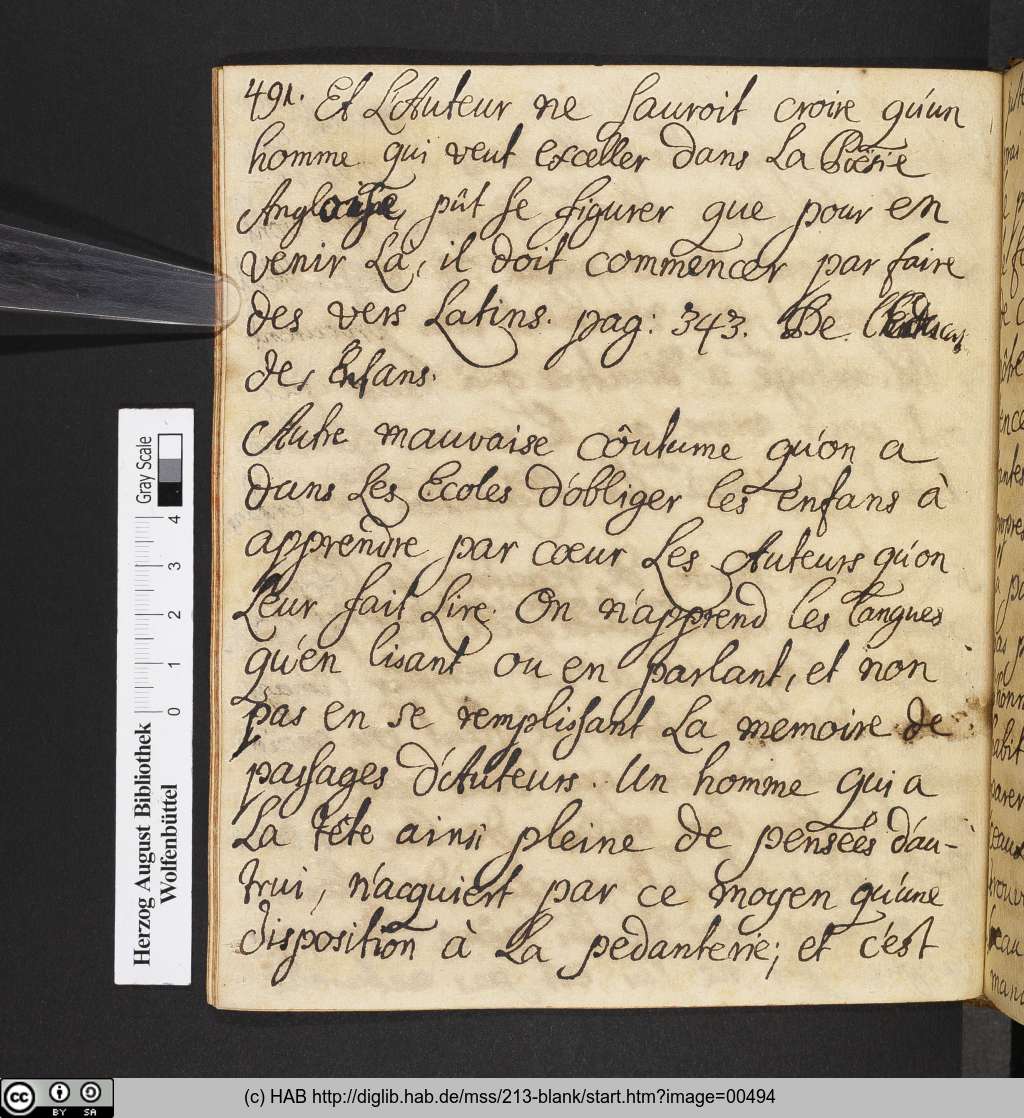 491. Et L'Auteur ne sauroit croire qu'un
homme qui veut exceller dans La Poësie
Angloise, pût se figurer que pour en
venir Là, il doit commencer par faire
des vers Latins. pag: 343. De
des Enfans.
Autre mauvaise côutume qu'on a
dans Les Ecoles d'obliger les enfans à
apprendre par cœur Les Auteurs qu'on
Leur fait Lire. On n'apprend les langues
qu'en lisant ou en parlant, et non
pas en se remplissant La memoire de
passages d'Auteurs. Un homme qui a
La tête ainsi pleine de pensées d'au-
trui, n'acquiert par ce moyen qu'une
disposition à La pedanterie; et c'est
Gray Scale
0 1 2 3 4
Herzog August Bibliothek
Wolfenbüttel
cc BY SA
(c) HAB http://diglib.hab.de/mss/213-blank/start.htm?image=00494